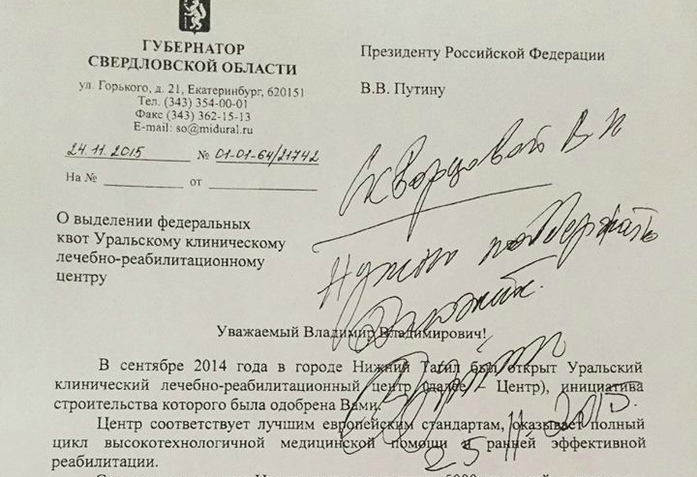 ГУБЕРНАТОР
СВЕРДЛОВСКОЙ ОБЛАСТИ
ул. Горького, д. 21, Екатеринбург, 620151
Тел. (343) 354-00-01
Факс (343) 362-15-13
E-mail: so@midural.ru
24.11.2015 № 01-01-64/21742
На № от
Президенту Российской Федерации
В.В. Путину
Скворцовой В И
Нужно поддержать
О выделении федеральных
квот Уральскому клиническому
лечебно-реабилитационному
центру
Уважаемый Владимир Владимирович!
В сентябре 2014 года в городе Нижний Тагил был открыт Уральский
клинический лечебно-реабилитационный центр (далее – Центр), инициатива
строительства которого была одобрена Вами.
Центр соответствует лучшим европейским стандартам, оказывает полный
цикл высокотехнологичной медицинской помощи и ранней эффективной
реабилитации.
25.11.2015